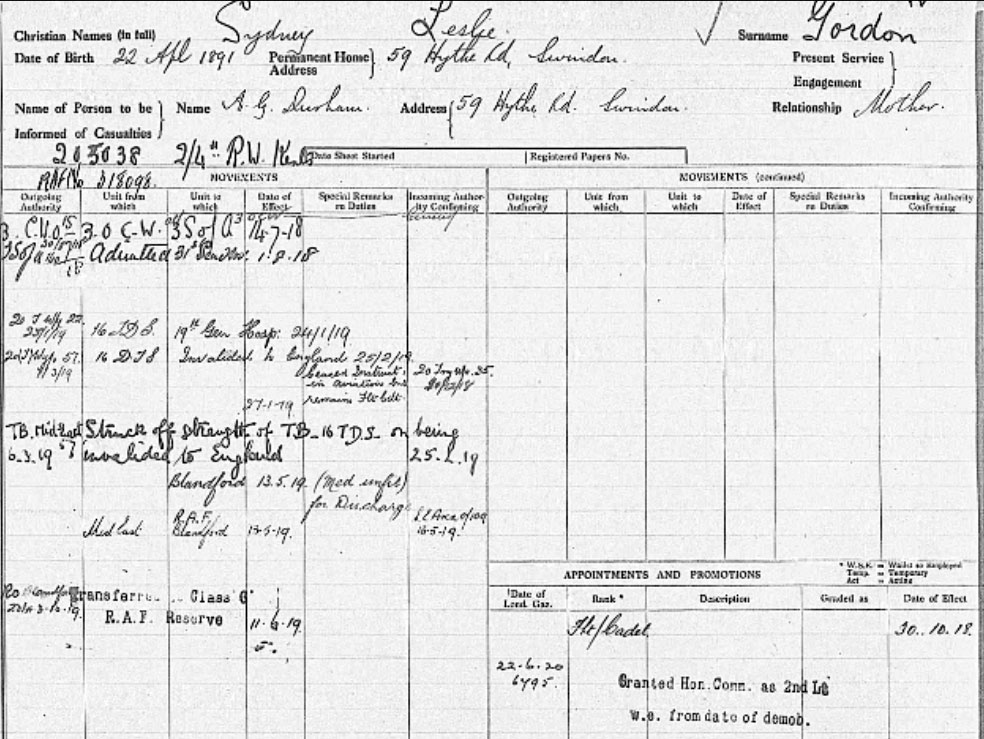 Christian Names (in full) Sydney Leslie Surname Gordon
Date of Birth 22 Apl 1891 Permanent Home Address 59 Hythe Rd, Swindon. Present Service
Engagement
Name of Person to be Informed of Casualties Name A. G. Durham. Address 59 Hythe Rd. Swindon. Relationship Mother.
205038 2/4th R.W. Kents Date Sheet Started Registered Papers No.
RAF No 318098.
MOVEMENTS MOVEMENTS (continued)
Outgoing Authority Unit from which Unit to which Date of Effect Special Remarks on Duties Incoming Authority Confirming Outgoing Authority Unit from which Unit to which Date of Effect Special Remarks on Duties Incoming Authority Confirming
3 S of A 14-7-18
Admitted 1-8-18
25/1/19 16 T.D.S. 19th Gen Hosp. 24/1/19.
57 16 D T S Invalided to England 25/2/19
Ceased Instruct. in aviation but remains Flt Cdt. 20/12/18
27-1-19
T.B. Mid East Struck off strength of T.B. 16 T.D.S. on being
6.3.19 57 invalided to England 25.2.19
Blandford 13.5.19. (Med unfit)
for Discharge
Mid East R.A.F. Blandford 13-5-19. 16-5-19.
* W.S.E. = Whilst so Employed
Temp. = Temporary
Act = Acting
APPOINTMENTS AND PROMOTIONS
Date of Lond. Gaz. Rank * Description Graded as Date of Effect
Transferred Class G
R.A.F. Reserve 11.6.19.
Flt/Cadet 30.10.18.
22-6-20
6795. Granted Hon. Comm. as 2nd Lt
w.e. from date of demob.